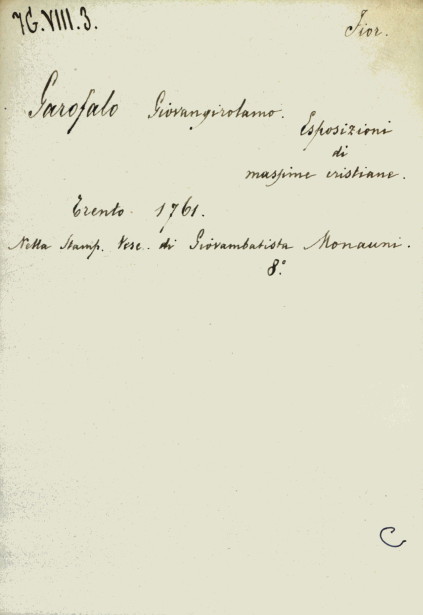 7G.VIII.3.
Fior.
Garofalo Giovangirolamo.
Esposizioni
di
massime cristiane.
Trento 1761.
Nella Stamp. Vesc. di Giovambatista Monauni.
8.°
C